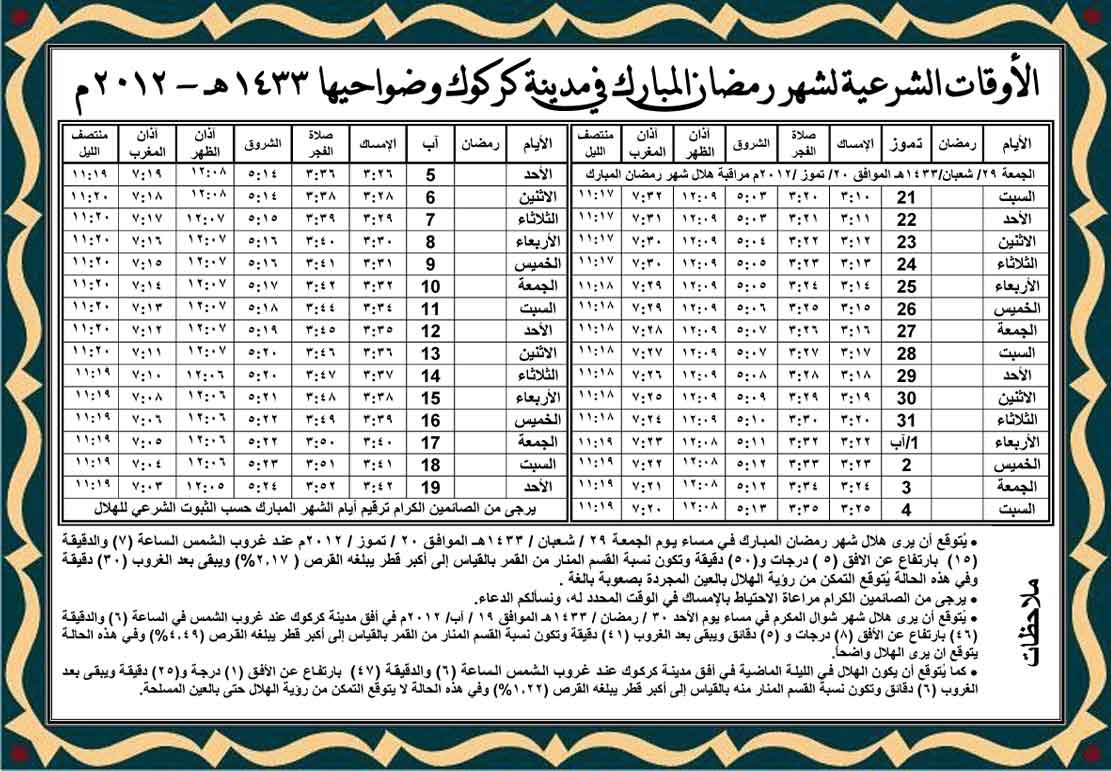 الأوقات الشرعية لشهر رمضان المبارك في مدينة كركوك وضواحيها ١٤٣٣هـ - ٢٠١٢م
الأيام رمضان تموز الإمساك صلاة الفجر الشروق أذان الظهر أذان المغرب منتصف الليل
الجمعة ٢٩/ شعبان/١٤٣٣هـ الموافق ٢٠/ تموز /٢٠١٢م مراقبة هلال شهر رمضان المبارك
السبت 21 ٣:١٠ ٣:٢٠ ٥:٠٣ ١٢:٠٩ ٧:٣٢ ١١:١٧
الأحد 22 ٣:١١ ٣:٢١ ٥:٠٣ ١٢:٠٩ ٧:٣١ ١١:١٧
الاثنين 23 ٣:١٢ ٣:٢٢ ٥:٠٤ ١٢:٠٩ ٧:٣٠ ١١:١٧
الثلاثاء 24 ٣:١٣ ٣:٢٣ ٥:٠٥ ١٢:٠٩ ٧:٣٠ ١١:١٧
الأربعاء 25 ٣:١٤ ٣:٢٤ ٥:٠٥ ١٢:٠٩ ٧:٢٩ ١١:١٨
الخميس 26 ٣:١٥ ٣:٢٥ ٥:٠٦ ١٢:٠٩ ٧:٢٩ ١١:١٨
الجمعة 27 ٣:١٦ ٣:٢٦ ٥:٠٧ ١٢:٠٩ ٧:٢٨ ١١:١٨
السبت 28 ٣:١٧ ٣:٢٧ ٥:٠٧ ١٢:٠٩ ٧:٢٧ ١١:١٨
الأحد 29 ٣:١٨ ٣:٢٨ ٥:٠٨ ١٢:٠٩ ٧:٢٦ ١١:١٨
الاثنين 30 ٣:١٩ ٣:٢٩ ٥:٠٩ ١٢:٠٩ ٧:٢٥ ١١:١٨
الثلاثاء 31 ٣:٢٠ ٣:٣٠ ٥:١٠ ١٢:٠٩ ٧:٢٤ ١١:١٨
الأربعاء 1/آب ٣:٢٢ ٣:٣٢ ٥:١١ ١٢:٠٨ ٧:٢٣ ١١:١٩
الخميس 2 ٣:٢٣ ٣:٣٣ ٥:١٢ ١٢:٠٨ ٧:٢٢ ١١:١٩
الجمعة 3 ٣:٢٤ ٣:٣٤ ٥:١٢ ١٢:٠٨ ٧:٢١ ١١:١٩
السبت 4 ٣:٢٥ ٣:٣٥ ٥:١٣ ١٢:٠٨ ٧:٢٠ ١١:١٩
الأيام رمضان آب الإمساك صلاة الفجر الشروق أذان الظهر أذان المغرب منتصف الليل
الأحد 5 ٣:٢٦ ٣:٣٦ ٥:١٤ ١٢:٠٨ ٧:١٩ ١١:١٩
الاثنين 6 ٣:٢٨ ٣:٣٨ ٥:١٤ ١٢:٠٨ ٧:١٨ ١١:٢٠
الثلاثاء 7 ٣:٢٩ ٣:٣٩ ٥:١٥ ١٢:٠٧ ٧:١٧ ١١:٢٠
الأربعاء 8 ٣:٣٠ ٣:٤٠ ٥:١٦ ١٢:٠٧ ٧:١٦ ١١:٢٠
الخميس 9 ٣:٣١ ٣:٤١ ٥:١٦ ١٢:٠٧ ٧:١٥ ١١:٢٠
الجمعة 10 ٣:٣٢ ٣:٤٢ ٥:١٧ ١٢:٠٧ ٧:١٤ ١١:٢٠
السبت 11 ٣:٣٤ ٣:٤٤ ٥:١٨ ١٢:٠٧ ٧:١٣ ١١:٢٠
الأحد 12 ٣:٣٥ ٣:٤٥ ٥:١٩ ١٢:٠٧ ٧:١٢ ١١:٢٠
الاثنين 13 ٣:٣٦ ٣:٤٦ ٥:٢٠ ١٢:٠٧ ٧:١١ ١١:٢٠
الثلاثاء 14 ٣:٣٧ ٣:٤٧ ٥:٢٠ ١٢:٠٦ ٧:١٠ ١١:١٩
الأربعاء 15 ٣:٣٨ ٣:٤٨ ٥:٢١ ١٢:٠٦ ٧:٠٨ ١١:١٩
الخميس 16 ٣:٣٩ ٣:٤٩ ٥:٢٢ ١٢:٠٦ ٧:٠٦ ١١:١٩
الجمعة 17 ٣:٤٠ ٣:٥٠ ٥:٢٢ ١٢:٠٦ ٧:٠٥ ١١:١٩
السبت 18 ٣:٤١ ٣:٥١ ٥:٢٣ ١٢:٠٦ ٧:٠٤ ١١:١٩
الأحد 19 ٣:٤٢ ٣:٥٢ ٥:٢٤ ١٢:٠٥ ٧:٠٣ ١١:١٩
يرجى من الصائمين الكرام ترقيم أيام الشهر المبارك حسب الثبوت الشرعي للهلال
ملاحظات
• يُتوقع أن يرى هلال شهر رمضان المبارك في مساء يوم الجمعة ٢٩ / شعبان / ١٤٣٣هـ الموافق ٢٠ / تموز / ٢٠١٢م عند غروب الشمس الساعة (٧) والدقيقة
(١٥) بارتفاع عن الافق (٥) درجات و(٥٠) دقيقة وتكون نسبة القسم المنار من القمر بالقياس إلى أكبر قطر يبلغه القرص (٢.١٧%) ويبقى بعد الغروب (٣٠) دقيقة
وفي هذه الحالة يُتوقع التمكن من رؤية الهلال بالعين المجردة بصعوبة بالغة .
• يرجى من الصائمين الكرام مراعاة الاحتياط بالإمساك في الوقت المحدد له، ونسألكم الدعاء.
• يُتوقع أن يرى هلال شهر شوال المكرم في مساء يوم الأحد ٣٠ / رمضان / ١٤٣٣هـ الموافق ١٩ / آب/ ٢٠١٢م في أفق مدينة كركوك عند غروب الشمس في الساعة (٦) والدقيقة
(٤٦) بارتفاع عن الأفق (٨) درجات و (٥) دقائق ويبقى بعد الغروب (٤١) دقيقة وتكون نسبة القسم المنار من القمر بالقياس إلى أكبر قطر يبلغه القرص (٤.٤٩%) وفي هذه الحالة
يتوقع ان يرى الهلال واضحاً.
• كما يُتوقع أن يكون الهلال في الليلة الماضية في أفق مدينة كركوك عند غروب الشمس الساعة (٦) والدقيقة (٤٧) بارتفاع عن الأفق (١) درجة و(٢٥) دقيقة ويبقى بعد
الغروب (٦) دقائق وتكون نسبة القسم المنار منه بالقياس إلى أكبر قطر يبلغه القرص (١.٢٢%) وفي هذه الحالة لا يتوقع التمكن من رؤية الهلال حتى بالعين المسلحة.